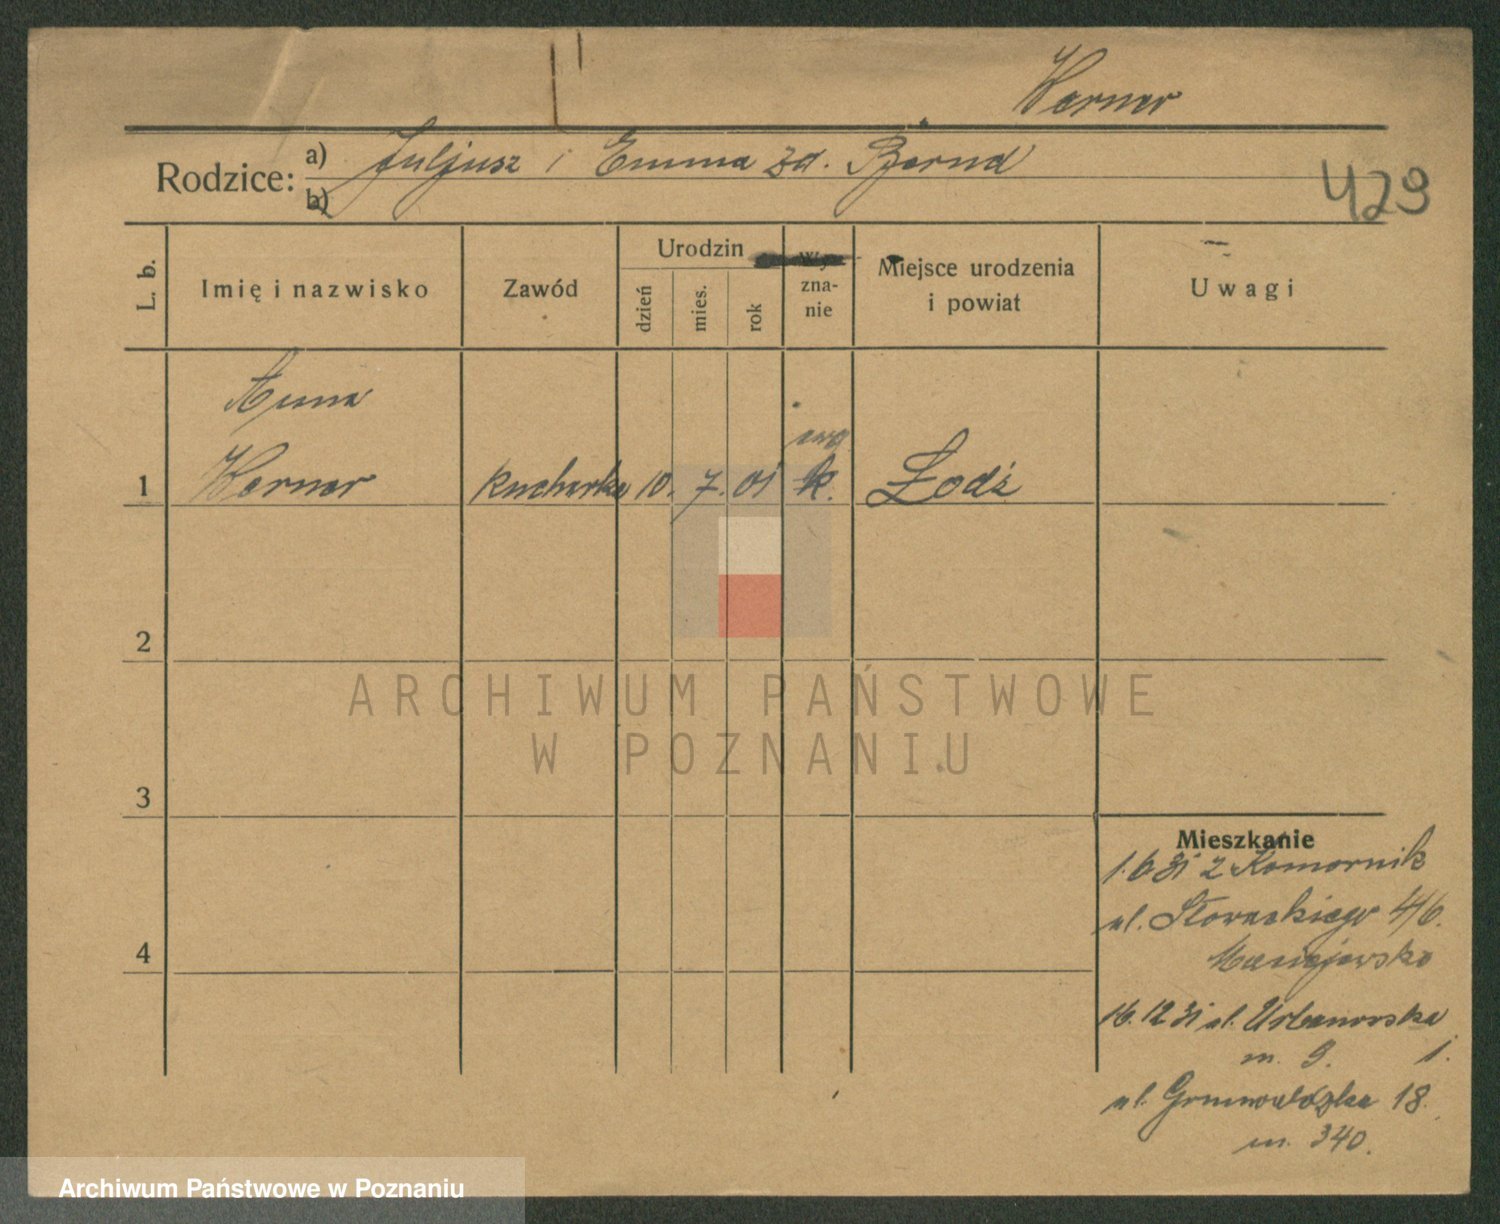 Werner
Rodzice: a) Juljusz i Emma zd. Bernd
b)
429
L. b. Imię i nazwisko Zawód Urodzin dzień mies. rok Wyznanie Miejsce urodzenia i powiat Uwagi
Anna
ewg
1 Werner kucharka 10. 7. 01 k. Łodź
2
ARCHIWUM PAŃSTWOWE
W POZNANIU
3
Mieszkanie
1.6 31 z Komornik
ul. Słowackiego
4
16. 12 31 ul. Urbanowska
m. 9. 1.
ul. Grunwaldzka 18.
m. 340.
Archiwum Państwowe w Poznaniu